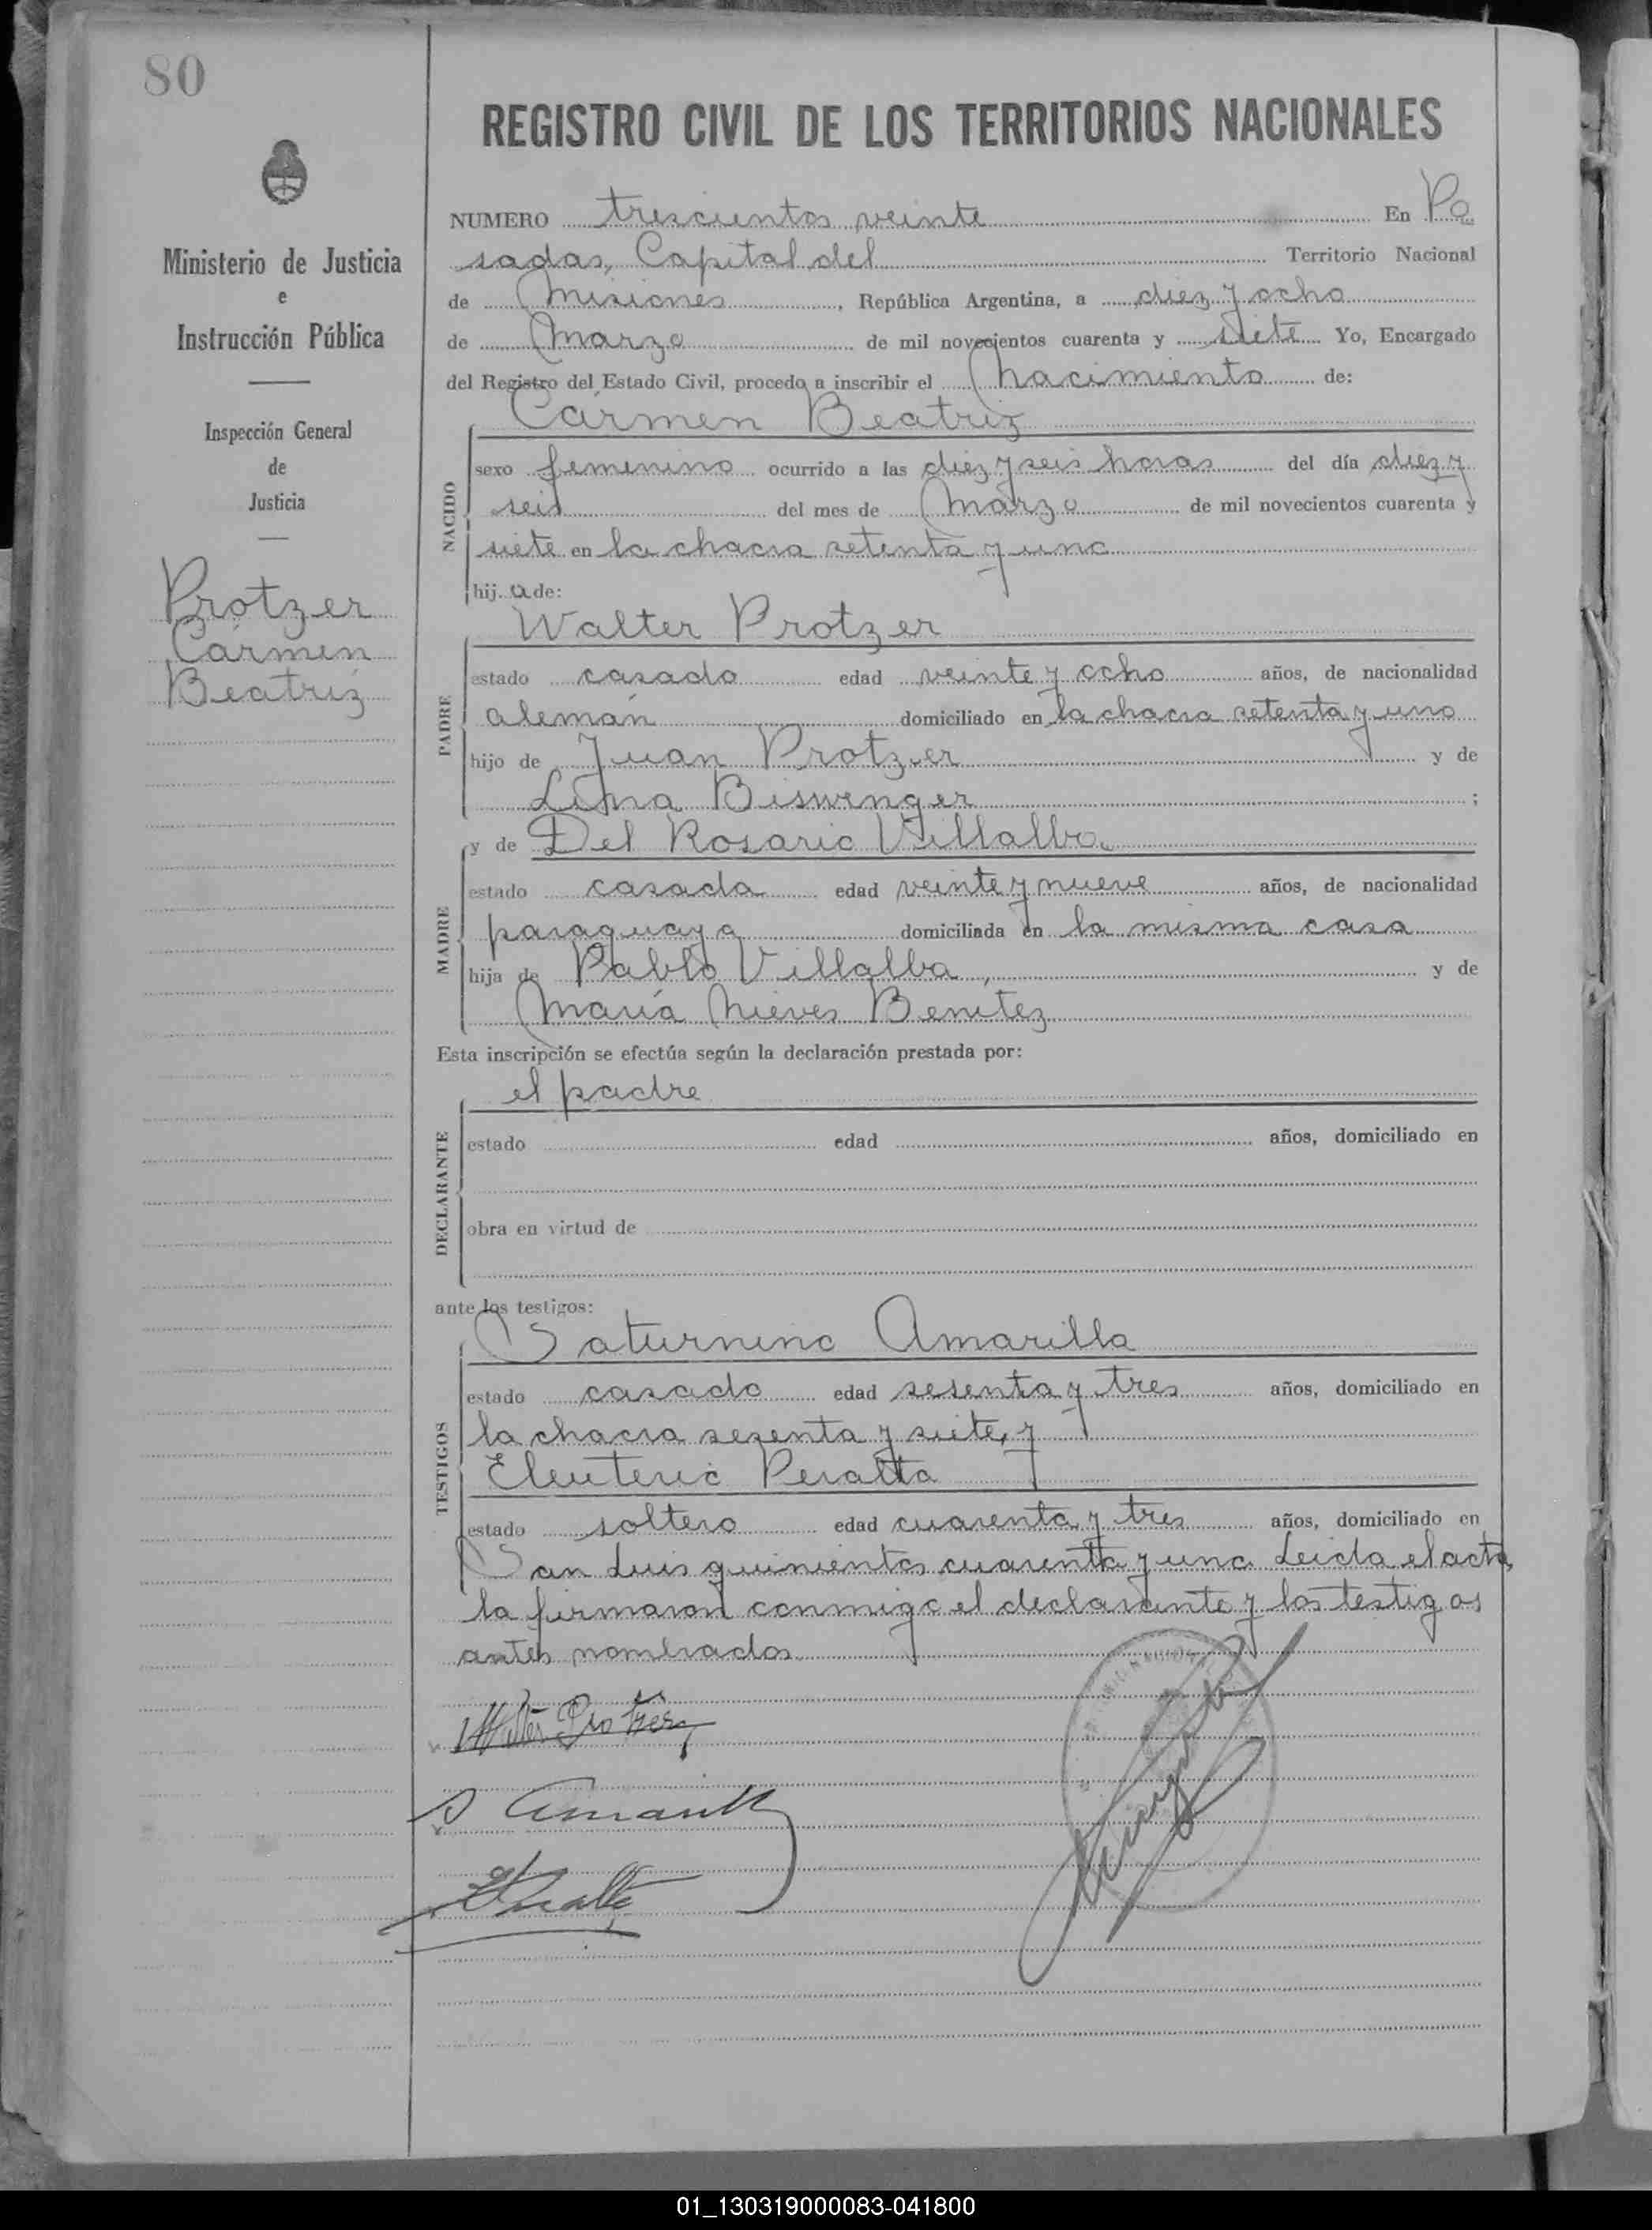 80
REGISTRO CIVIL DE LOS TERRITORIOS NACIONALES
Ministerio de Justicia
e
Instrucción Pública
Inspección General
de
Justicia
Protzer
Cármen
Beatriz
NUMERO trescientos veinte En Po
sadas, Capital del Territorio Nacional
de Misiones, República Argentina, a diez y ocho
de Marzo de mil novecientos cuarenta y siete Yo, Encargado
del Registro del Estado Civil, procedo a inscribir el Nacimiento de:
Cármen Beatriz
NACIDO
sexo femenino ocurrido a las diez y seis horas del día diez y
seis del mes de Marzo de mil novecientos cuarenta y
siete en la chacra setenta y uno
hij.a de:
Walter Protzer
PADRE
estado casado edad veinte y ocho años, de nacionalidad
alemán domiciliado en la chacra setenta y uno
hijo de Juan Protzer y de
Lina Biswenger ;
y de Del Rosario Villalba
MADRE
estado casada edad veinte y nueve años, de nacionalidad
paraguaya domiciliada en la misma casa
hija de Pablo Villalba y de
María Nieves Benítez
Esta inscripción se efectúa según la declaración prestada por:
el padre
DECLARANTE
estado edad años, domiciliado en
obra en virtud de
ante los testigos:
Saturnino Amarilla
TESTIGOS
estado casado edad sesenta y tres años, domiciliado en
la chacra sesenta y siete, y
Eleuterio Peralta
estado soltero edad cuarenta y tres años, domiciliado en
San Luis quinientos cuarenta y uno. Leida el acta,
la firmaron conmigo el declarante y los testigos
antes nombrados.
Walter Protzer
S Amarilla
EPeralta
01_130319000083-041800